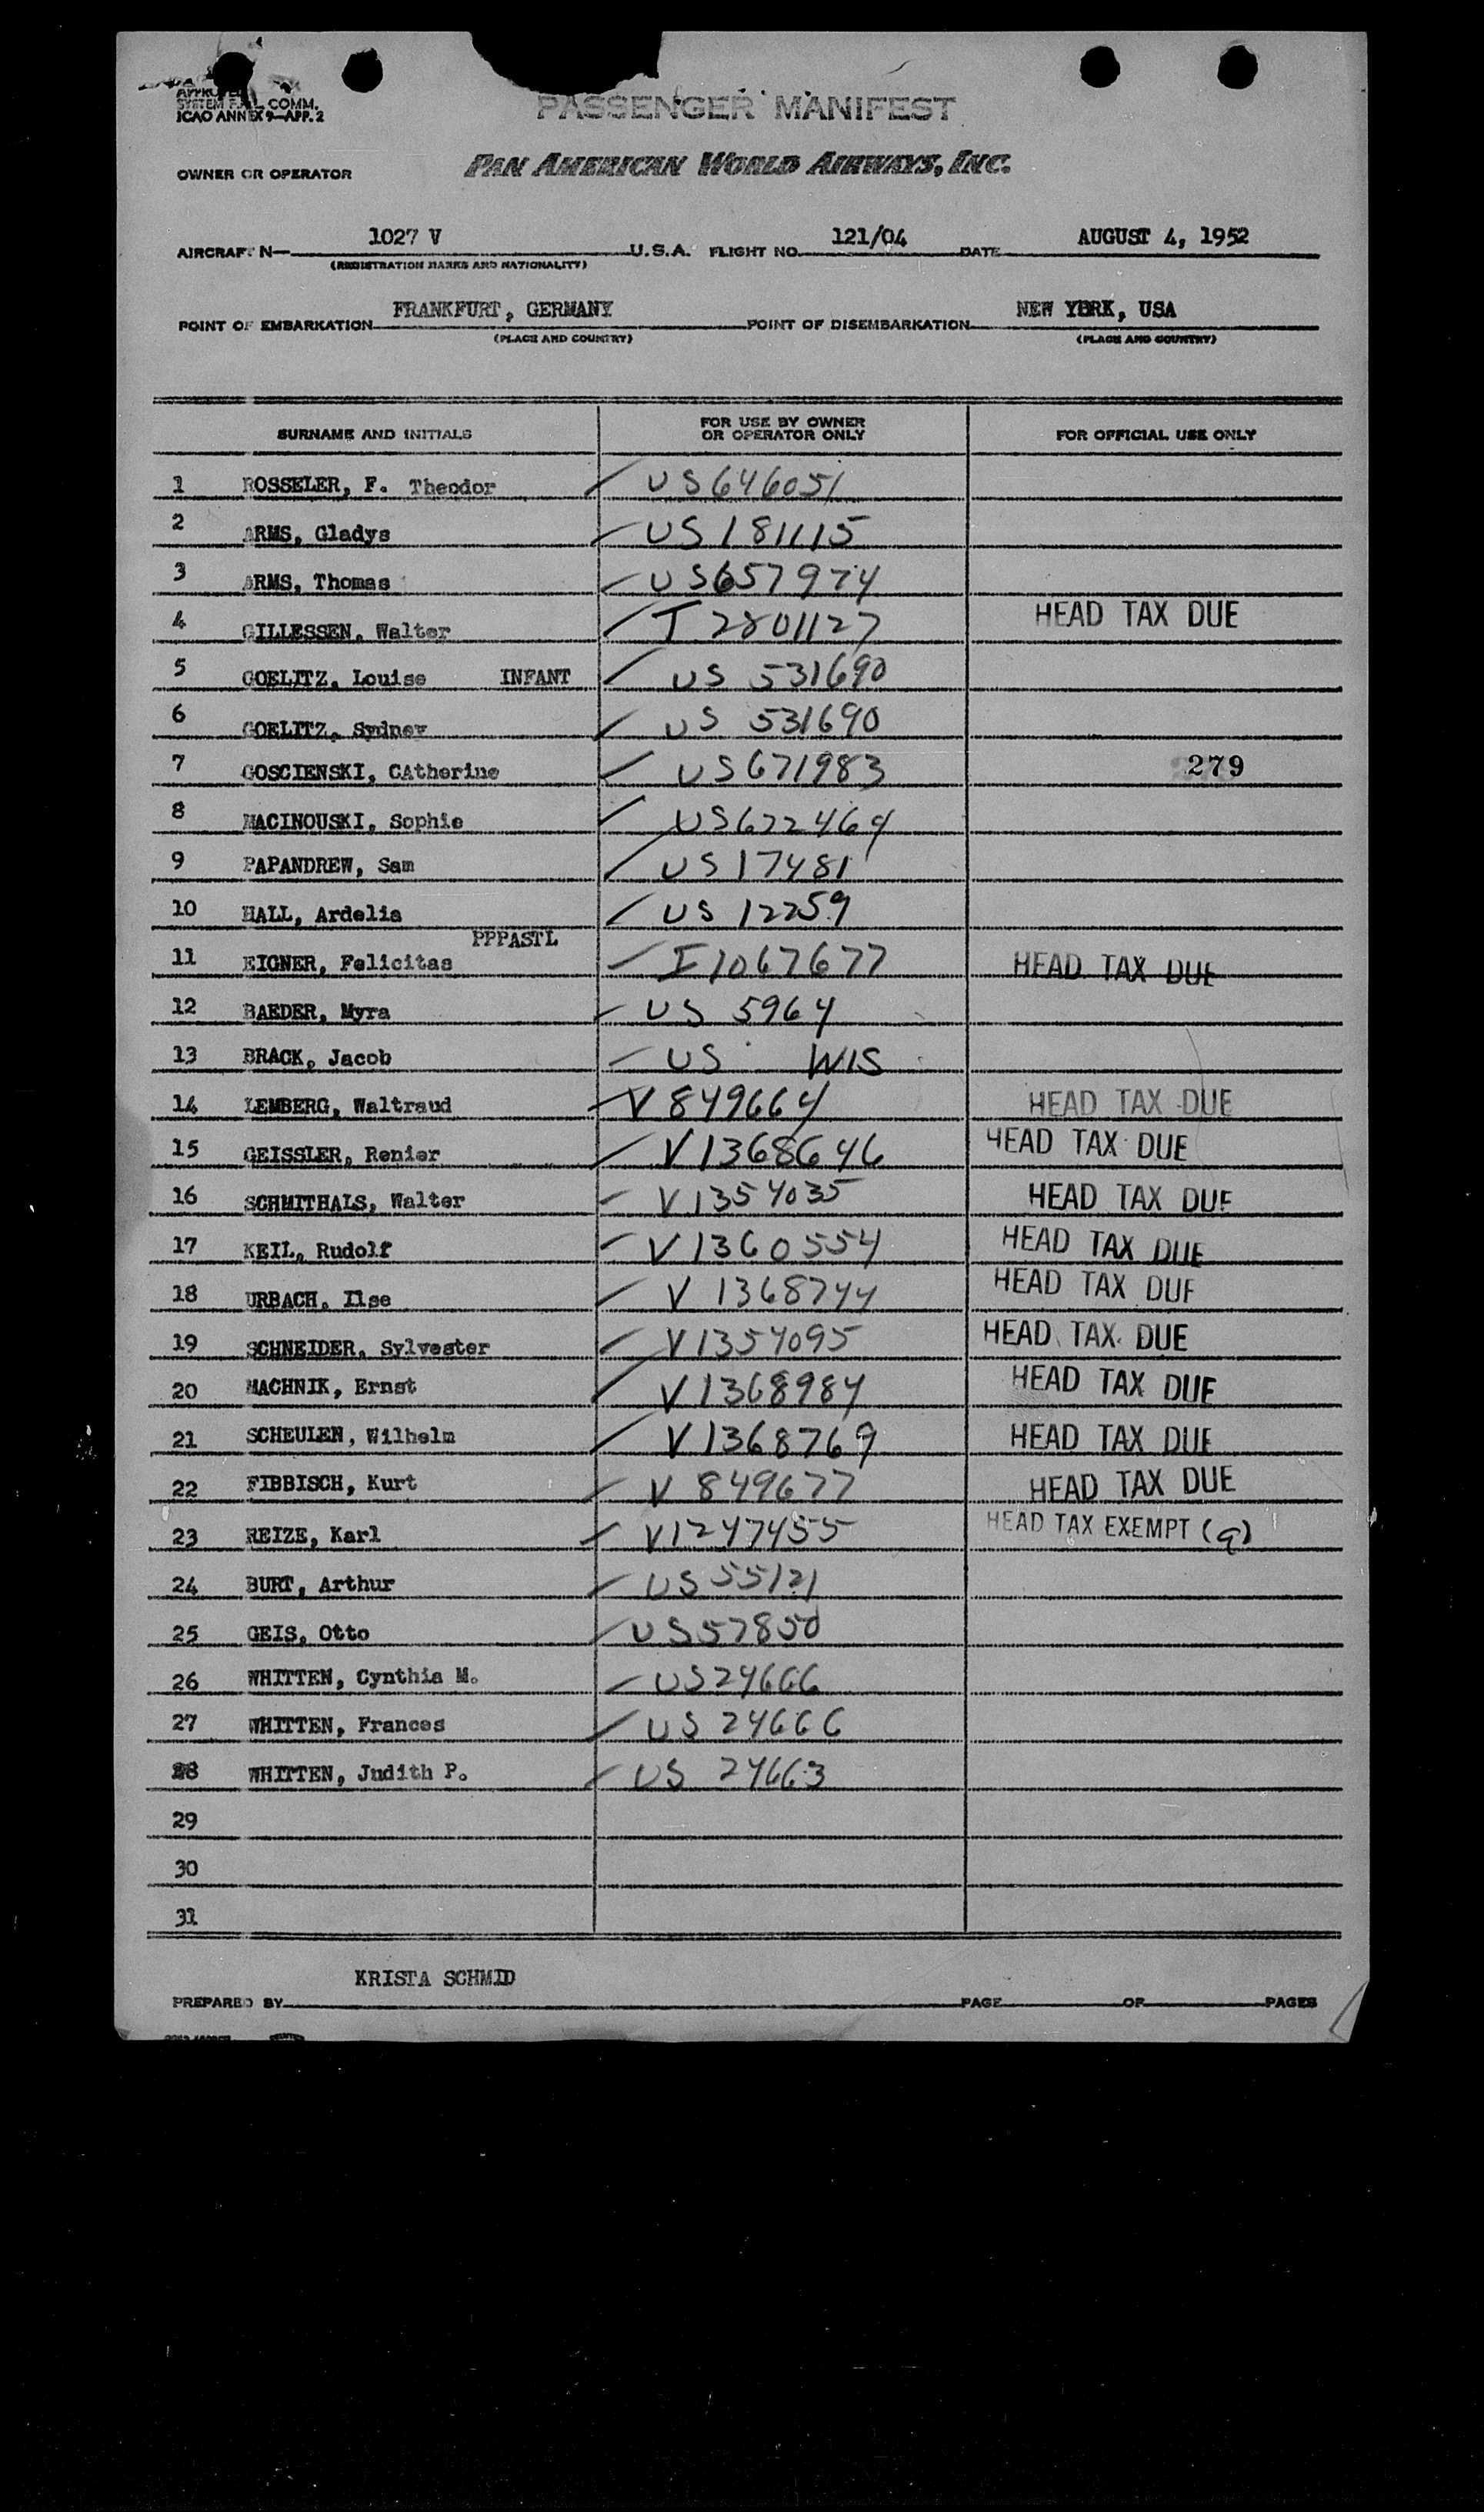 APPROVED
SYSTEM F.A.L. COMM.
ICAO ANNEX 9—APP. 2
PASSENGER MANIFEST
OWNER OR OPERATOR PAN AMERICAN WORLD AIRWAYS, INC.
AIRCRAFT N— 1027 V U.S.A. FLIGHT NO. 121/04 DATE AUGUST 4, 1952
(REGISTRATION MARKS AND NATIONALITY)
POINT OF EMBARKATION FRANKFURT, GERMANY POINT OF DISEMBARKATION NEW YBRK, USA
(PLACE AND COUNTRY) (PLACE AND COUNTRY)
SURNAME AND INITIALS FOR USE BY OWNER OR OPERATOR ONLY FOR OFFICIAL USE ONLY
1 ROSSELER, F. Theodor US646051
2 ARMS, Gladys US 181115
3 ARMS, Thomas US657974
4 GILLESSEN, Walter I 2801127 HEAD TAX DUE
5 GOELITZ, Louise INFANT US 531690
6 GOELITZ, Sydney US 531690
7 GOSCIENSKI, CAtherine US671983 279
8 MACINOUSKI, Sophie US622464
9 PAPANDREW, Sam US 17481
10 HALL, Ardelia US 12259
PPPASTL
11 EIGNER, Felicitas I1067677 HEAD TAX DUE
12 BAEDER, Myra US 5964
13 BRACK, Jacob US WIS
14 LEMBERG, Waltraud V849664 HEAD TAX DUE
15 GEISSLER, Renier V1368646 HEAD TAX DUE
16 SCHMITHALS, Walter V1354035 HEAD TAX DUE
17 KEIL, Rudolf V1360554 HEAD TAX DUE
18 URBACH, Ilse V 1368744 HEAD TAX DUE
19 SCHNEIDER, Sylvester V1354095 HEAD TAX DUE
20 MACHNIK, Ernst V1368984 HEAD TAX DUE
21 SCHEULEN, Wilhelm V1368769 HEAD TAX DUE
22 FIBBISCH, Kurt V 849677 HEAD TAX DUE
23 REIZE, Karl V1247455 HEAD TAX EXEMPT (q)
24 BURT, Arthur US55121
25 GEIS, Otto US57850
26 WHITTEN, Cynthia M. US24666
27 WHITTEN, Frances US 24666
28 WHITTEN, Judith P. US 24663
29
30
31
KRISTA SCHMID
PREPARED BY PAGE OF PAGES